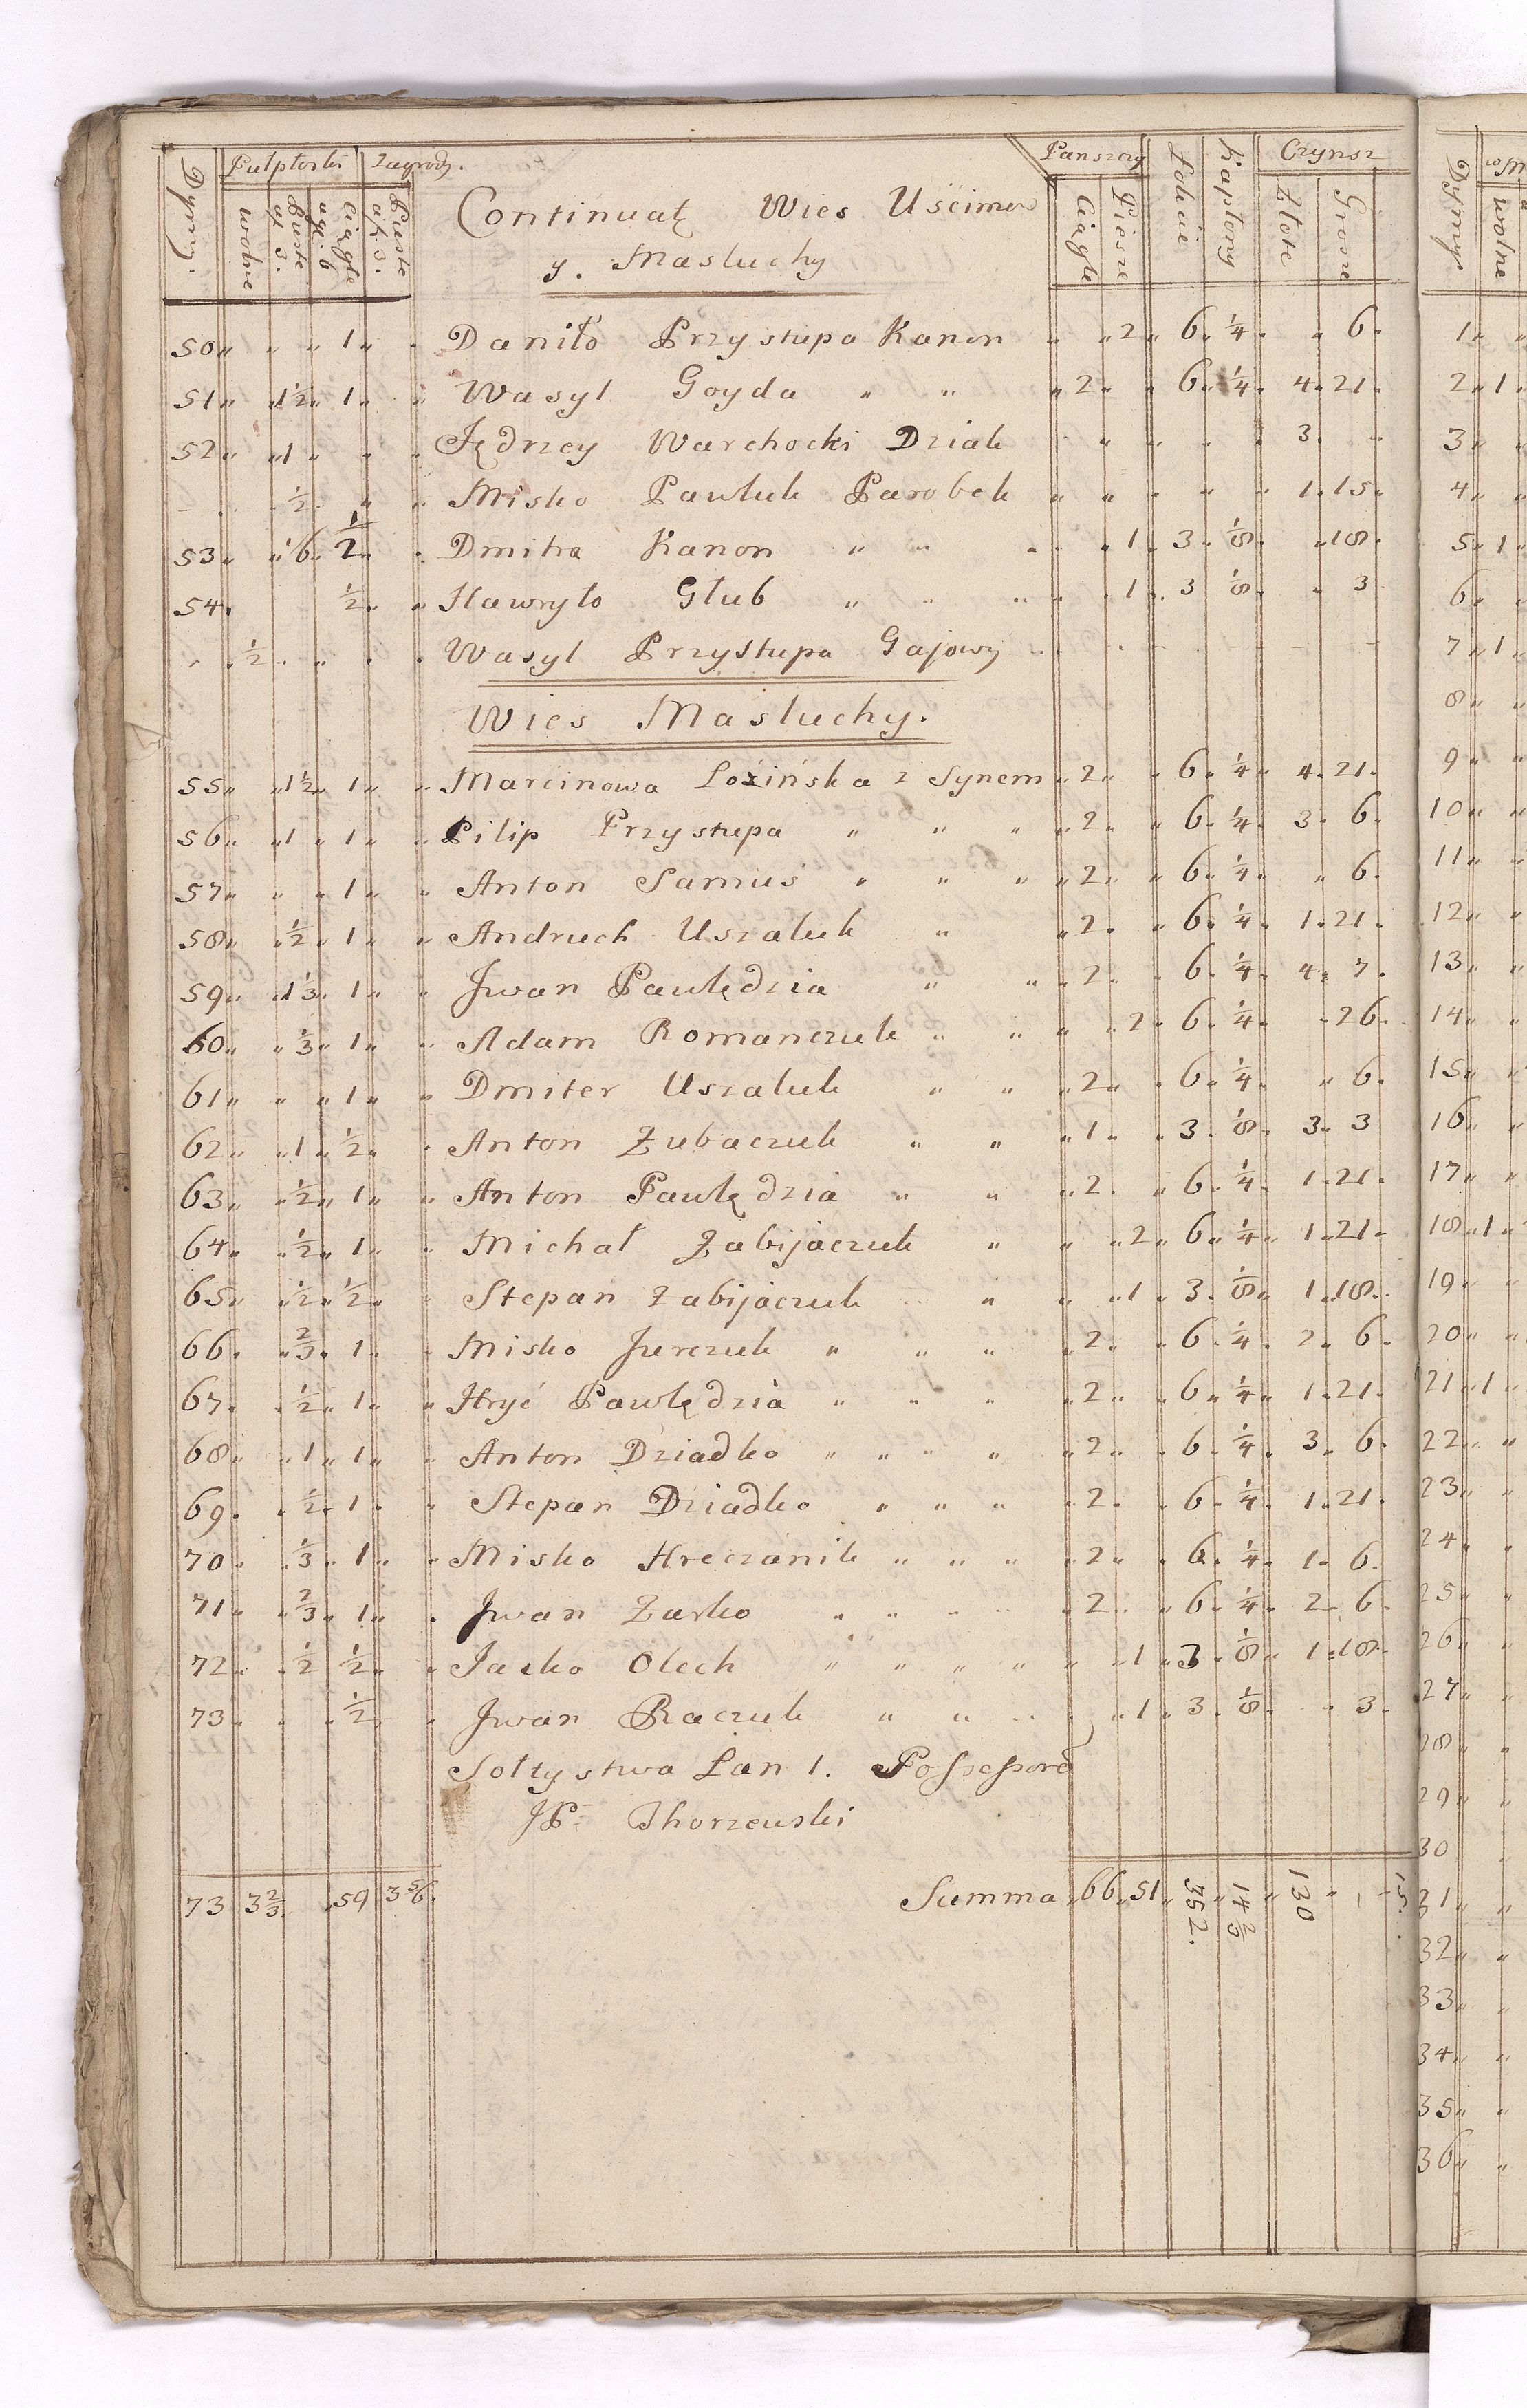 Dymy. Pułpłoski Zagrody. Panszczy Łokcie Kapłony Czynsz
wolne Puste a zł 3. Ciągłe a gr. 6 Puste a zł. 3. Ciągłe Piesze Złote Grosze
Continuat Wies Uścimow
y. Masluchy
50 1 Daniło Przystupa Kanon 2 6 1/4 6
51 1 1/2 1 Wasyl Goyda 2 6 1/4 4 21
52 1 Jędrzey Warchocki Dziak 3
1/2 Misko Pawluk Parobek 1 15
53 1/6 1/2 Dmitra Kanon 1 3 1/8 18
54 1/2 Hawryło Głub 1 3 1/8 3
1/2 Wasyl Przystupa Gajowy
Wies Masluchy.
55 1 1/2 1 Marcinowa Łozińska z Synem 2 6 1/4 4 21
56 1 1 Pilip Przystupa 2 6 1/4 3 6
57 1 Anton Samus 2 6 1/4 6
58 1/2 1 Andruch Uszaluk 2 6 1/4 1 21
59 1 1/3 1 Jwan Pawlędzia 2 6 1/4 4 7
60 1/3 1 Adam Romanczuk 2 6 1/4 26
61 1 Dmiter Uszaluk 2 6 1/4 6
62 1 1/2 Anton Zubaczuk 1 3 1/8 3 3
63 1/2 1 Anton Pawlędzia 2 6 1/4 1 21
64 1/2 1 Michał Zabijaczuk 2 6 1/4 1 21
65 1/2 1/2 Stepan Zabijaczuk 1 3 1/8 1 18
66 2/3 1 Misko Jurczuk 2 6 1/4 2 6
67 1/2 1 Hryć Pawlędzia 2 6 1/4 1 21
68 1 1 Anton Dziadko 2 6 1/4 3 6
69 1/2 1 Stepan Dziadko 2 6 1/4 1 21
70 1/3 1 Misko Hreczanik 2 6 1/4 1 6
71 2/3 1 Jwan Zasko 2 6 1/4 2 6
72 1/2 1/2 Jasko Olech 1 3 1/8 1 18
73 1/2 Jwan Raczuk 1 3 1/8 3
Sołtystwa Łan 1. Possessore
JP. Thorzewski
73 3 2/3 59 3 5/6 Summa 66 51 352. 14 2/3 130 15
Dymy wolne
1
2 1
3
4
5 1
6
7 1
8
9
10
11
12
13
14
15
16
17
18 1
19
20
21 1
22
23
24
25
26
27
28
29
30
31
32
33
34
35
36